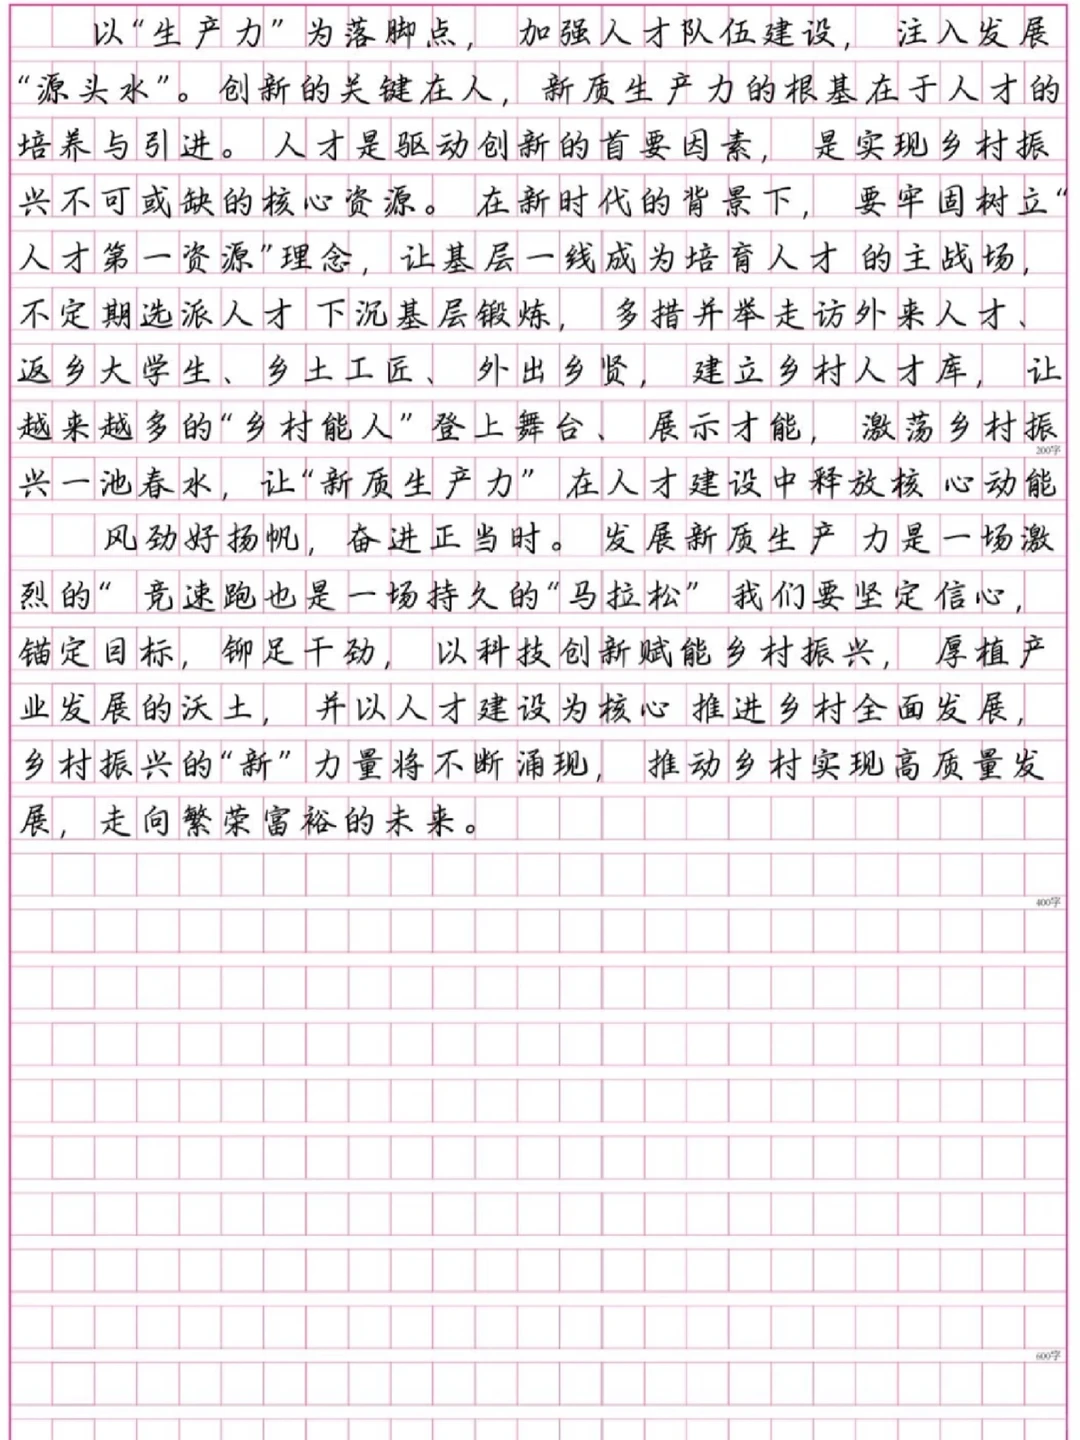 以“生产力”为落脚点，加强人才队伍建设，注入发展
“源头水”。创新的关键在人，新质生产力的根基在于人才的
培养与引进。人才是驱动创新的首要因素，是实现乡村振
兴不可或缺的核心资源。在新时代的背景下，要牢固树立“
人才第一资源”理念，让基层一线成为培育人才的主战场，
不定期选派人才下沉基层锻炼，多措并举走访外来人才、
返乡大学生、乡土工匠、外出乡贤，建立乡村人才库，让
越来越多的“乡村能人”登上舞台、展示才能，激荡乡村振
200字
兴一池春水，让“新质生产力”在人才建设中释放核心动能
风劲好扬帆，奋进正当时。发展新质生产力是一场激
烈的“竞速跑也是一场持久的“马拉松”我们要坚定信心，
锚定目标，铆足干劲，以科技创新赋能乡村振兴，厚植产
业发展的沃土，并以人才建设为核心推进乡村全面发展，
乡村振兴的“新”力量将不断涌现，推动乡村实现高质量发
展，走向繁荣富裕的未来。
400字
600字